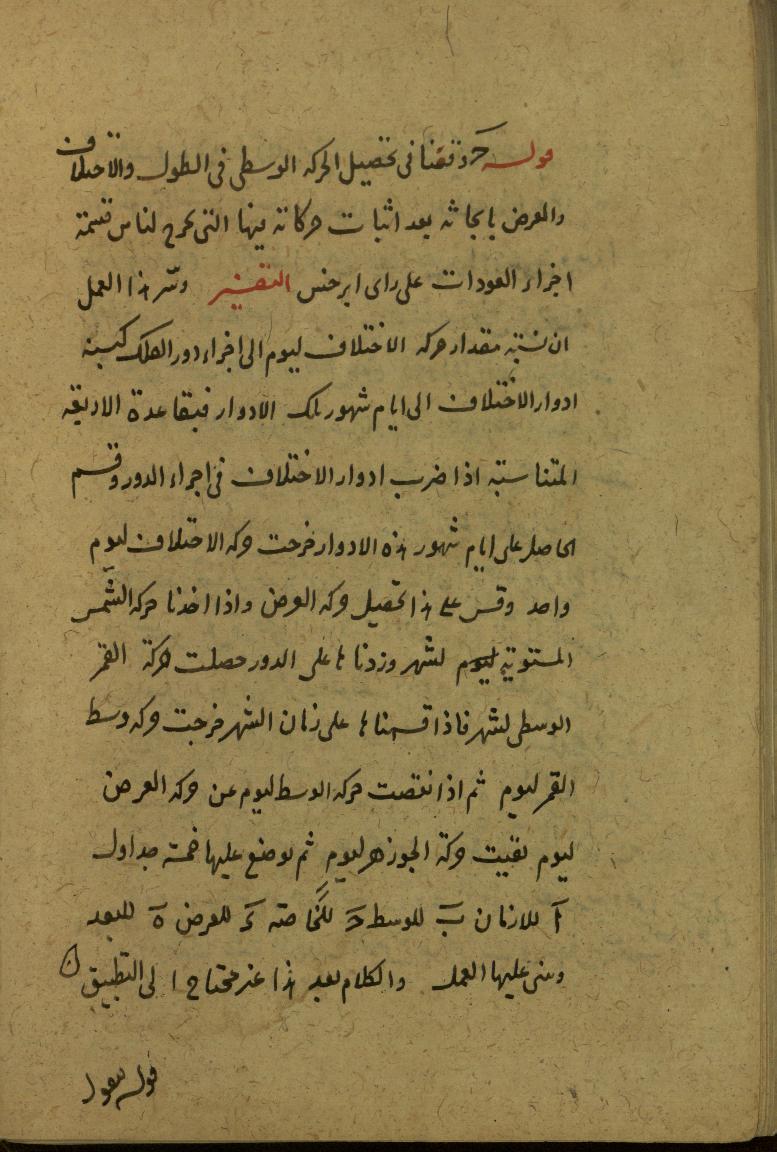 قوله ح دققنا فى تحصيل الحركه الوسطى فى الطول والاختلاف
والعرض بابحاثه بعد اثبات حركاته فيها التى تخرج لنا من قسمة
اجزاء العودات على راى ابرخس التفسير وسر هذا العمل
ان نسبة مقدار حركه الاختلاف ليوم الى اجزاء دور الفلك كنسبة
ادوار الاختلاف الى ايام شهور تلك الادوار فبقاعدة الاربعه
المتناسبة اذا ضرب ادوار الاختلاف فى اجزاء الدور وقسم
الحاصل على ايام شهور هذه الادوار خرجت حركه الاختلاف ليوم
واحد وقس على هذا تحصيل حركه العرض واذا اخذنا حركه الشمس
المستويه ليوم لشهر وزدناها على الدور حصلت حركة القمر
الوسطى لشهر فاذا قسمناها على زمان الشهر خرجت حركه وسط
القمر ليوم ثم اذا نقصت حركه الوسط ليوم عن حركه العرض
ليوم بقيت حركة الجوزهر ليوم ثم نوضع عليها خمسة جداول
آ للازمان ب للوسط ح للخاصه د للعرض ه للبعد
ونبنى عليها العمل والكلام بعد هذا غير محتاج الى التطبيق
قوله نقول